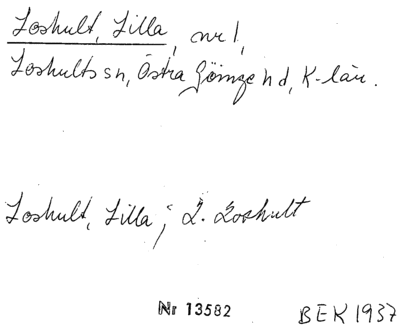 Loshult, Lilla, nr 1,
Loshults sn, Östra Göinge hd, K-län.
Loshult, Lilla; L. Loshult
Nr 13582 BEK 1937